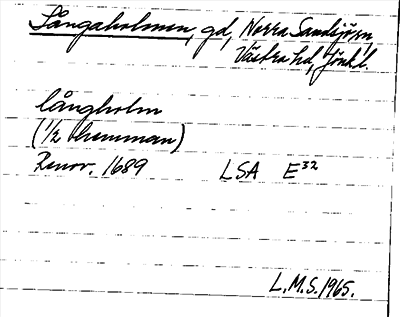 Långaholmen, gd, Norra Sandsjö sn,
Västra hd, Jönk. l.
långholm
(1/2 hemman)
Renov. 1689 LSA E32
L.M.S. 1965.